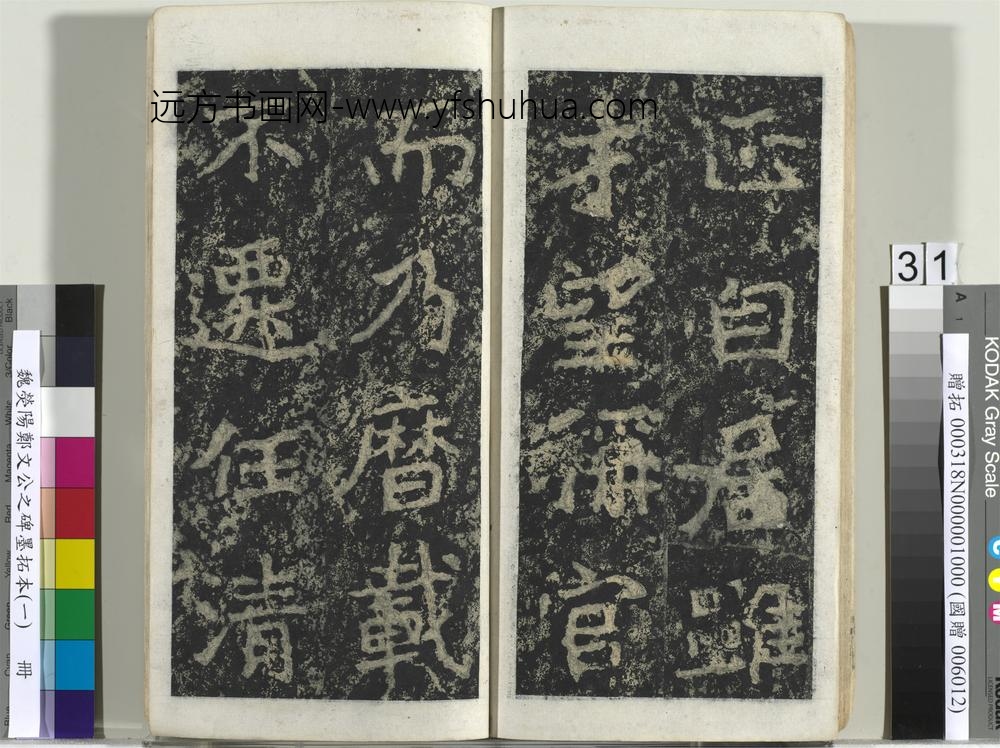 正自居雖
才望稱官
而乃曆載
不遷任清
远方书画网-www.yfshuhua.com
魏滎陽鄭文公之碑墨拓本(一) 冊
31
贈拓 000318N000001000 (國贈 006012)
KODAK Gray Scale
A 1
C
Y
M
Black
3/Color
White
Magenta
Red
Yellow
Green
Cyan
Blue